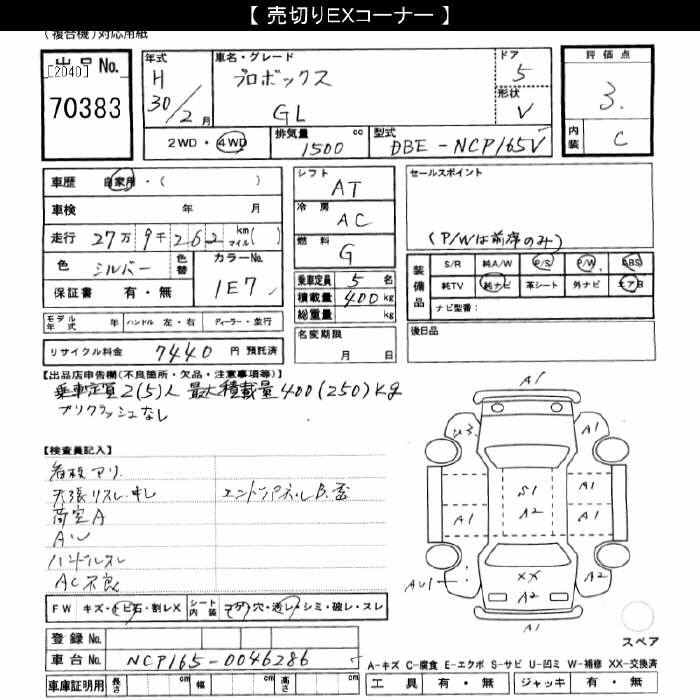 【 売切りEXコーナー 】
(複合機)対応用紙
出品No. [2040] 70383
年式 H 30/2月
車名・グレード プロボックス GL
ドア 5
形状 V
2WD・4WD
排気量 1500 cc
型式 DBE-NCP165V
評価点 3.
内装 C
車歴 自家用・( )
車検 年 月
走行 27万9千262 km マイル( )
色 シルバー 色替 カラーNo. 1E7
保証書 有・無
モデル年式 年 ハンドル 左・右 ディーラー・並行
リサイクル料金 7440 円 預託済
シフト AT
冷房 AC
燃料 G
乗車定員 5 名
積載量 400 kg
総重量 kg
名変期限 月 日
セールスポイント
(P/Wは前席のみ)
装備品 S/R 純A/W P/S P/W ABS
純TV 純ナビ 革シート 外ナビ エアB
ナビ型番:
後日品
【出品店申告欄(不良箇所・欠品・注意事項等)】
乗車定員2(5)人 最大積載量400(250)kg
プリクラッシュなし
【検査員記入】
看板アリ.
天張リスレ・
荷室A エンドパネルB.歪
Aル
ハンドルスレ
AC不良
FW キズ・トビ石・割レX シート内装 コゲ・穴・シミ・破レ・スレ
登録No.
車台No. NCP165-0046286
車庫証明用 長さ cm 幅 cm 高さ cm
A1
U3 A1
S1
A1 A1 A2 A1 A1
XX
AU1 A2
A1
スペア
A-キズ C-腐食 E-エクボ S-サビ U-凹ミ W-補修 XX-交換済
工具 有・無 ジャッキ 有・無